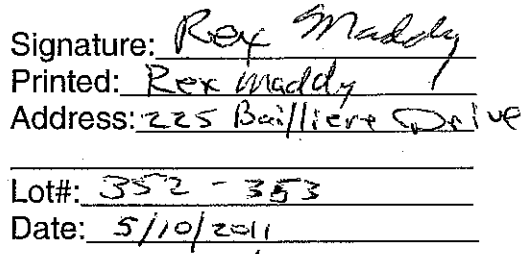 Signature: Rex Maddy
Printed: Rex Maddy
Address: 225 Bailliere Drive
Lot#: 352 - 353
Date: 5/10/2011